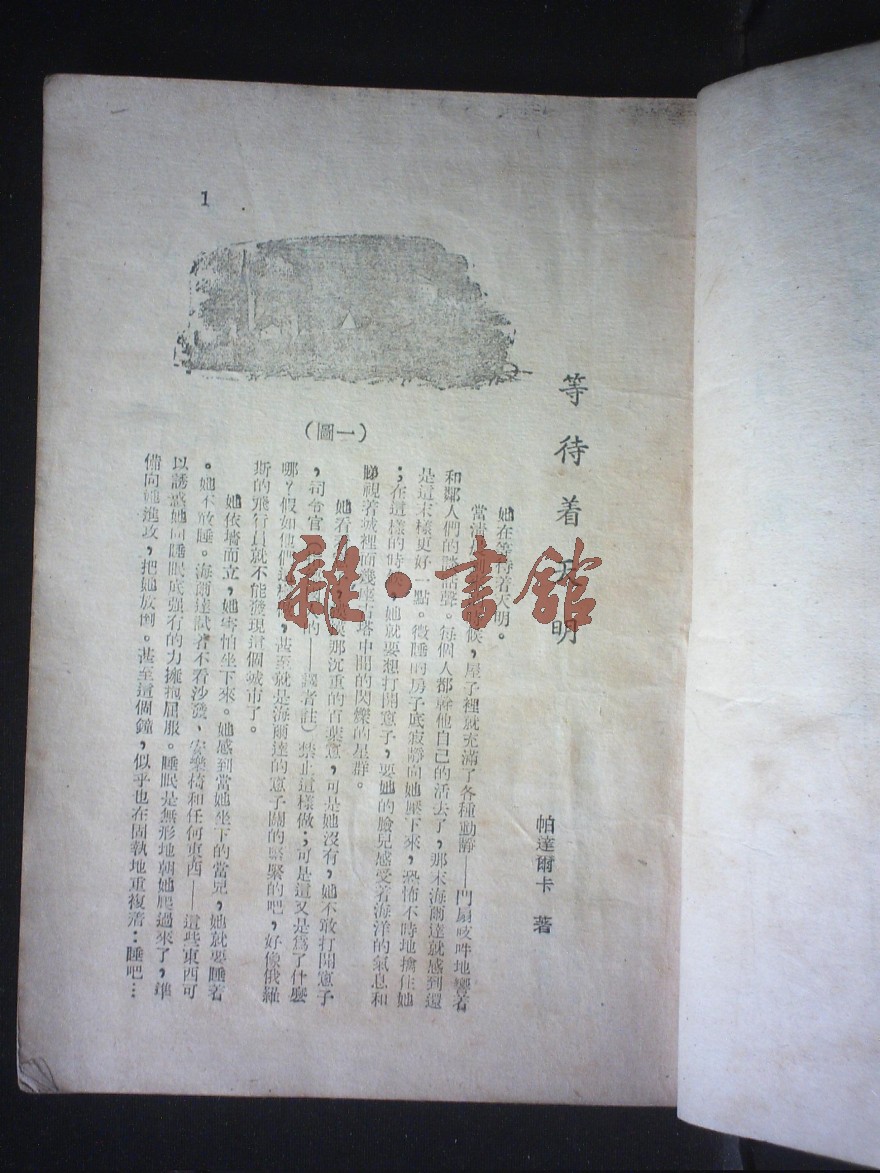 等待着天明
帕達爾卡 著
她在等待着天明。
候，屋子裡就充滿了各種動靜——門扇吱吽地響着
和鄰人們的 聲。每個人都幹他自己的活去了，那末海爾達就感到還
是這末樣更好一點。微睡的房子底寂靜向她壓下來，恐怖不時地擒住她
；在這樣的時候，她就要想打開窓子，要她的臉兒感受着海洋的氣息和
睇視着城裡面幾座古塔中間的閃爍的星群。
她看 那沉重的百葉窓，可是她沒有，她不敢打開窓子
，司令官 的——譯者註）禁止這樣做；可是這又是爲了什麼
哪？假如他們 ，甚至就是海爾達的窓子關的緊緊的吧，好像俄羅
斯的飛行員就不能發現這個城市了。
她依墻而立，她害怕坐下來。她感到當她坐下的當兒，她就要睡着
。她不敢睡。海爾達試着不看沙發、安樂椅和任何東西——這些東西可
以誘惑她向睡眠底强有的力擁抱屈服。睡眠是無形地朝她爬過來了，準
備向她進攻，把她放倒。甚至這個鐘，似乎也在固執地重複着：睡吧…
（圖一）
1
雜·書館